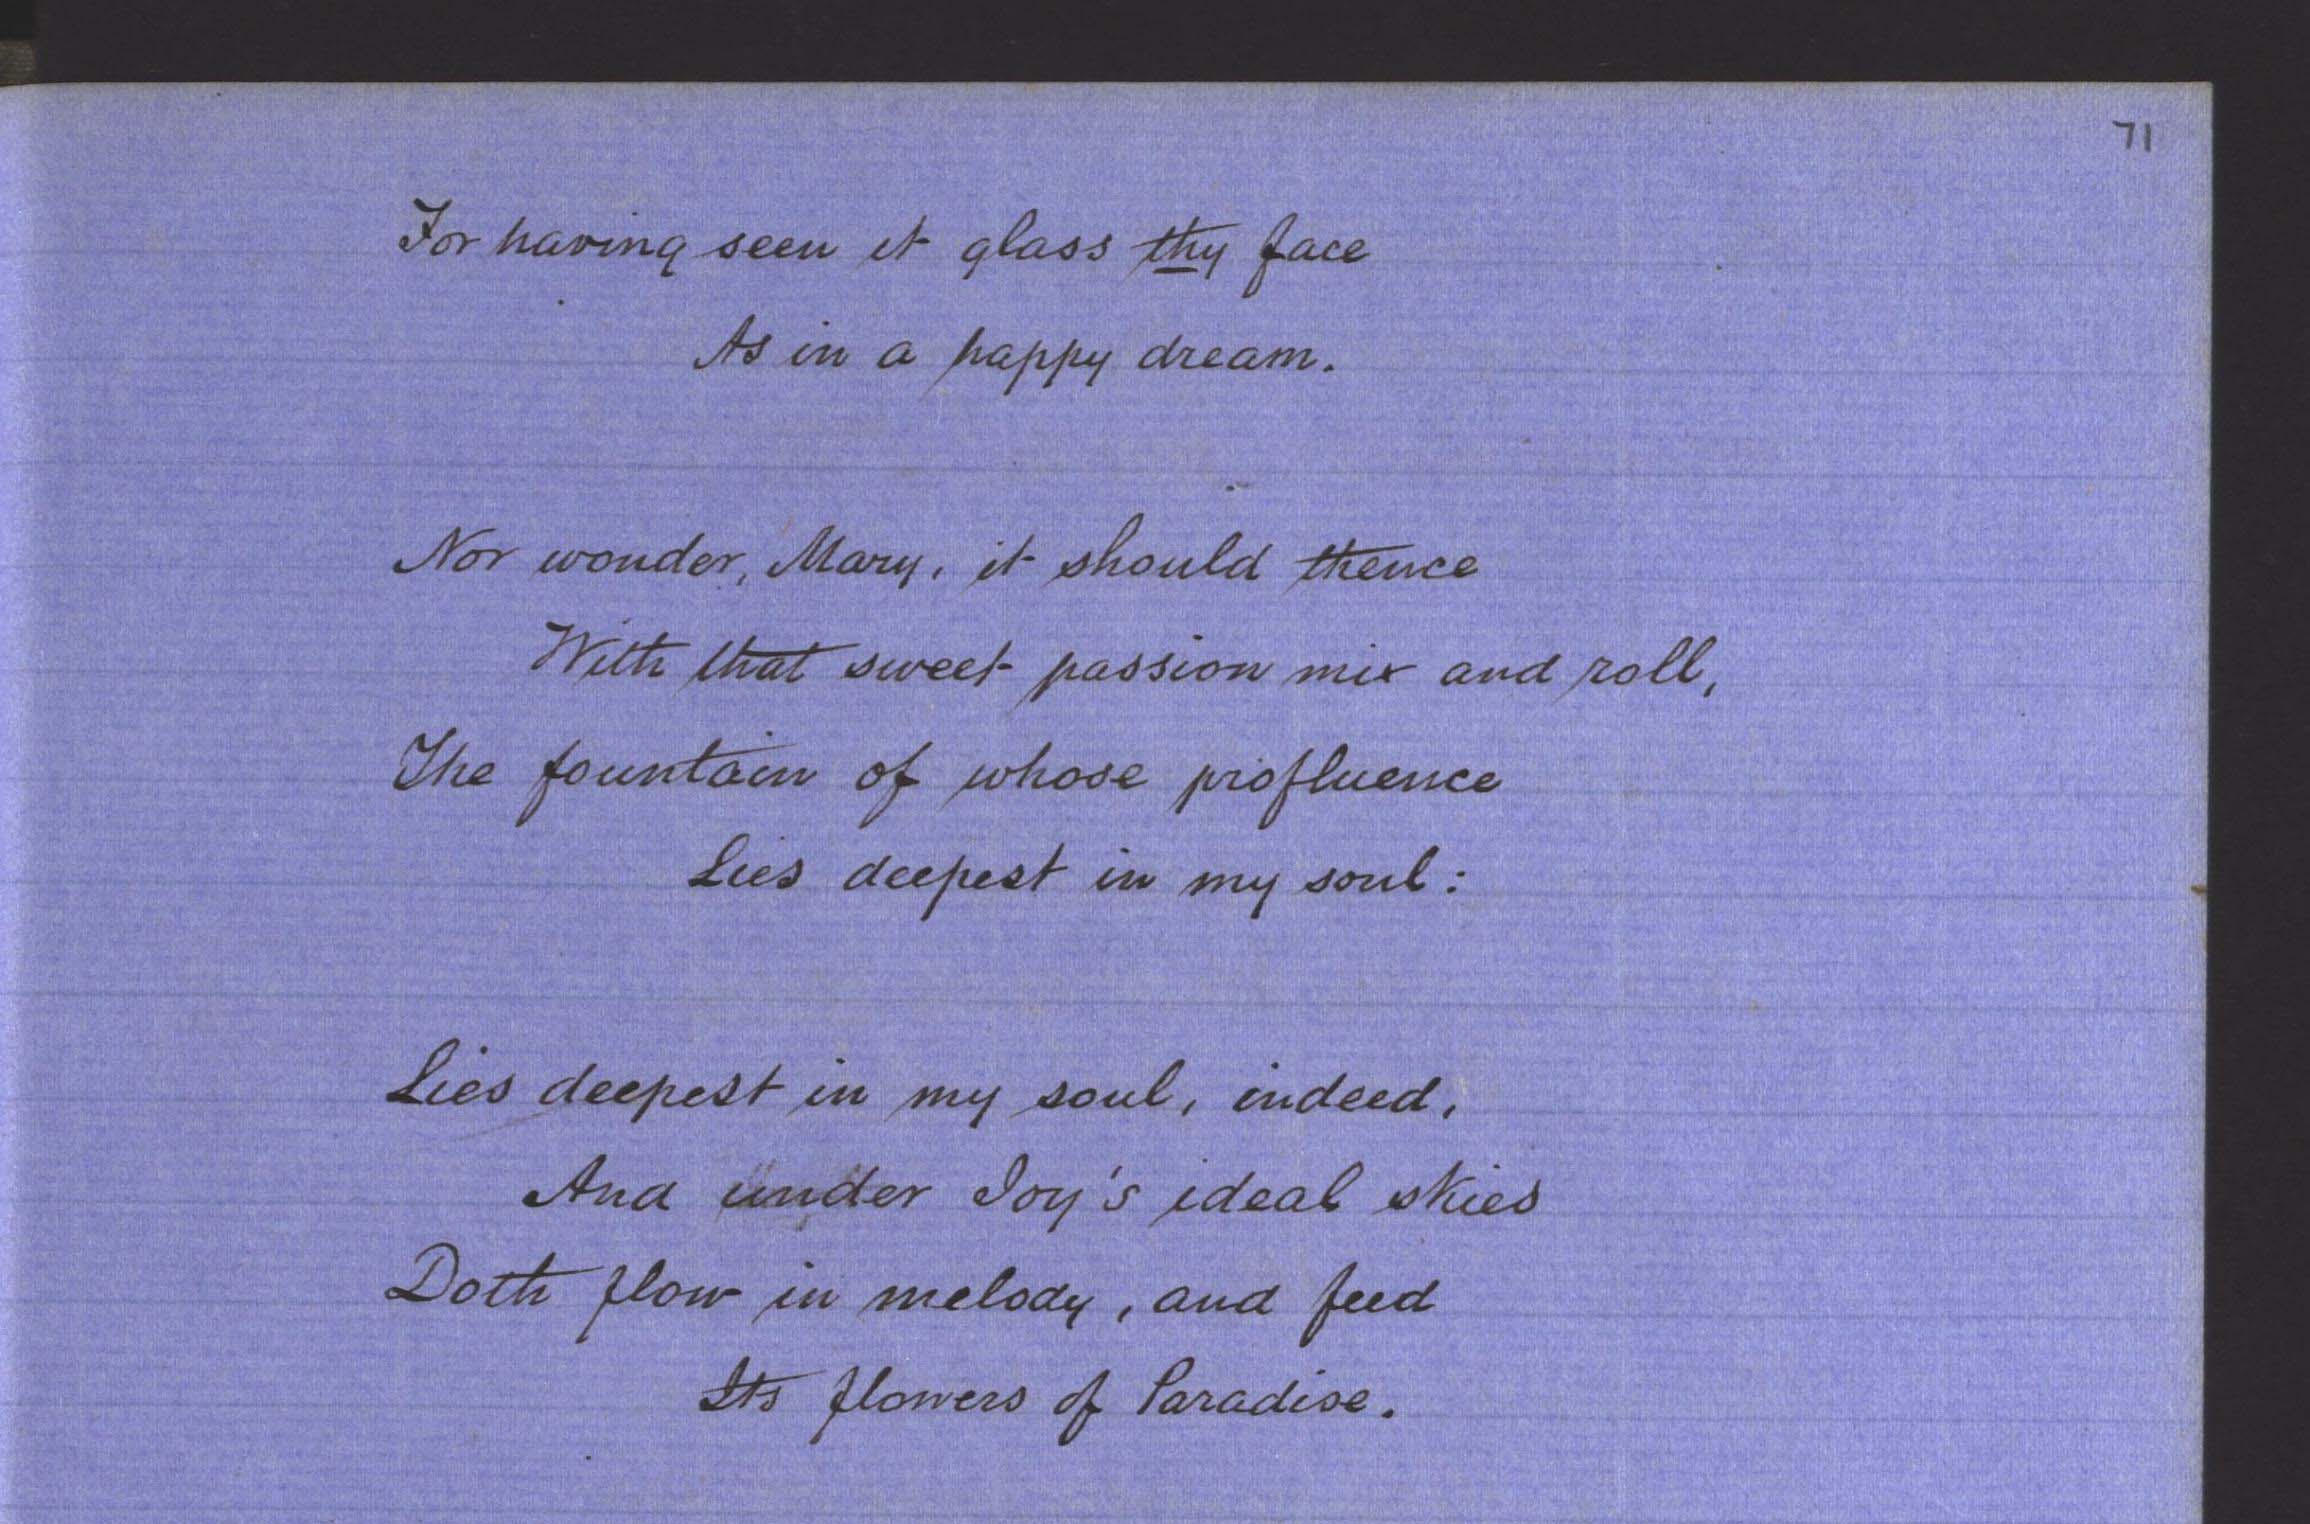 71
For having seen it glass thy face
As in a happy dream.
Nor wonder, Mary, it should thence
With that sweet passion mix and roll,
The fountain of whose profluence
Lies deepest in my soul:
Lies deepest in my soul, indeed,
And under Joy's ideal skies
Doth flow in melody, and feed
Its flowers of Paradise.